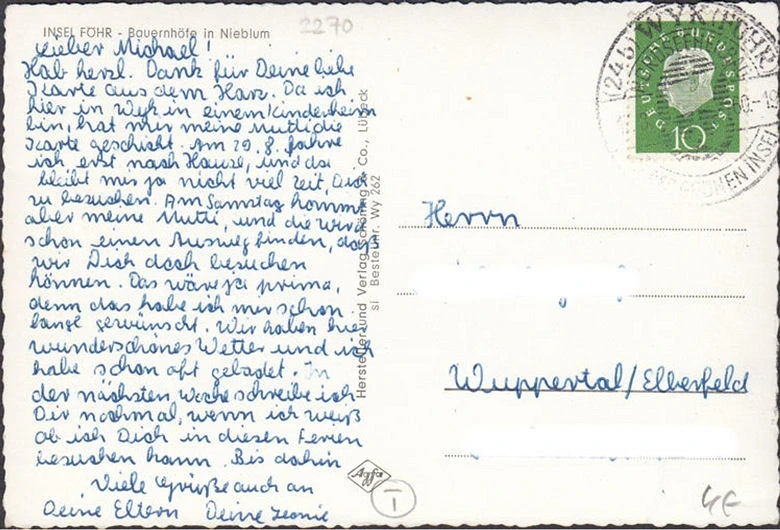 INSEL FÖHR - Bauernhöfe in Nieblum
2270
Lieber Michael!
Hab herzl. Dank für Deine liebe
Karte aus dem Harz. Da ich
hier in Wyk in einem Kinderheim
bin, hat mir meine Mutti die
Karte geschickt. Am 29. 8. fahre
ich erst nach Hause, und da
bleibt mir ja nicht viel Zeit, Dich
zu besuchen. Am Samstag kommt
aber meine Mutti, und die wird
schon einen Ausweg finden, daß
wir Dich doch besuchen
können. Das wäre ja prima,
denn das habe ich mir schon
lange gewünscht. Wir haben hier
wunderschönes Wetter und ich
habe schon oft gebadet. In
der nächsten Woche schreibe ich
Dir nochmal, wenn ich weiß
ob ich Dich in diesen Ferien
besuchen kann. Bis dahin
Viele Grüße auch an
Deine Eltern Deine Leonie
Hersteller und Verlag Schöning & Co., Lübeck
si Bestell-Nr. Wy 262
Agfa
T
(24b) WYK
DEUTSCHE BUNDESPOST
10
GRÜNEN INSEL
Herrn
Wuppertal/Elberfeld
4€